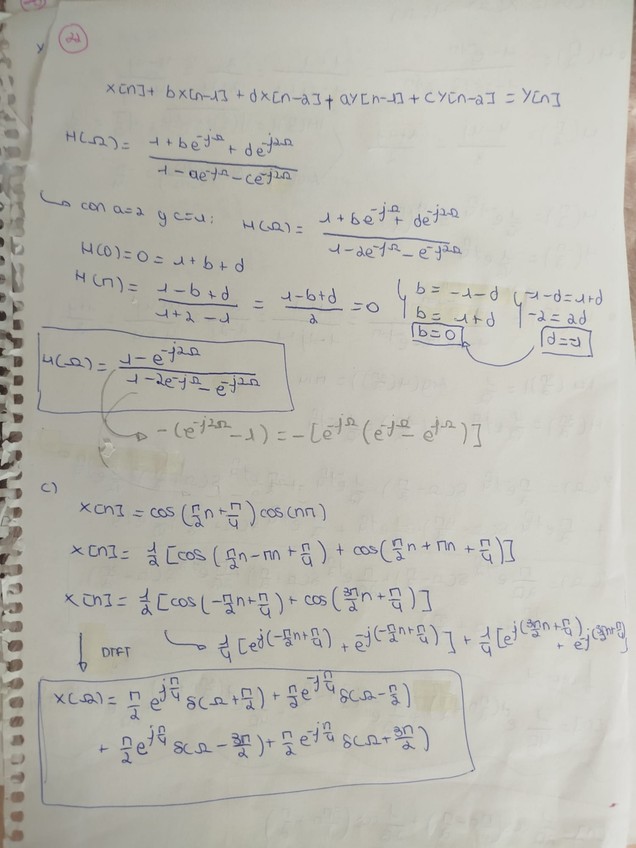 x
22
x[n] + bx[n-1] + dx[n-2] + ay[n-1] + cy[n-2] = y[n]
H(Ω) = (1 + be^-jΩ + de^-j2Ω) / (1 - ae^-jΩ - ce^-j2Ω)
↳ con a=2 y c=1: H(Ω) = (1 + be^-jΩ + de^-j2Ω) / (1 - 2e^-jΩ - e^-j2Ω)
H(0) = 0 = 1 + b + d
H(π) = (1 - b + d) / (1 + 2 - 1) = (1 - b + d) / 2 = 0
{ b = -1 - d
b = 1 + d
b = 0
{ -1 - d = 1 + d
-2 = 2d
d = -1
H(Ω) = (1 - e^-j2Ω) / (1 - 2e^-jΩ - e^-j2Ω)
→ -(e^-j2Ω - 1) = -[e^-jΩ (e^-jΩ - e^jΩ)]
c)
x[n] = cos(π/2 n + π/4) cos(nπ)
x[n] = 1/2 [cos(π/2 n - πn + π/4) + cos(π/2 n + πn + π/4)]
x[n] = 1/2 [cos(-π/2 n + π/4) + cos(3π/2 n + π/4)]
↳ 1/4 [e^j(-π/2 n + π/4) + e^-j(-π/2 n + π/4)] + 1/4 [e^j(3π/2 n + π/4) + e^-j(3π/2 n + π/4)]
↓ DTFT
X(Ω) = π/2 e^jπ/4 δ(Ω + π/2) + π/2 e^-jπ/4 δ(Ω - π/2)
+ π/2 e^jπ/4 δ(Ω - 3π/2) + π/2 e^-jπ/4 δ(Ω + 3π/2)